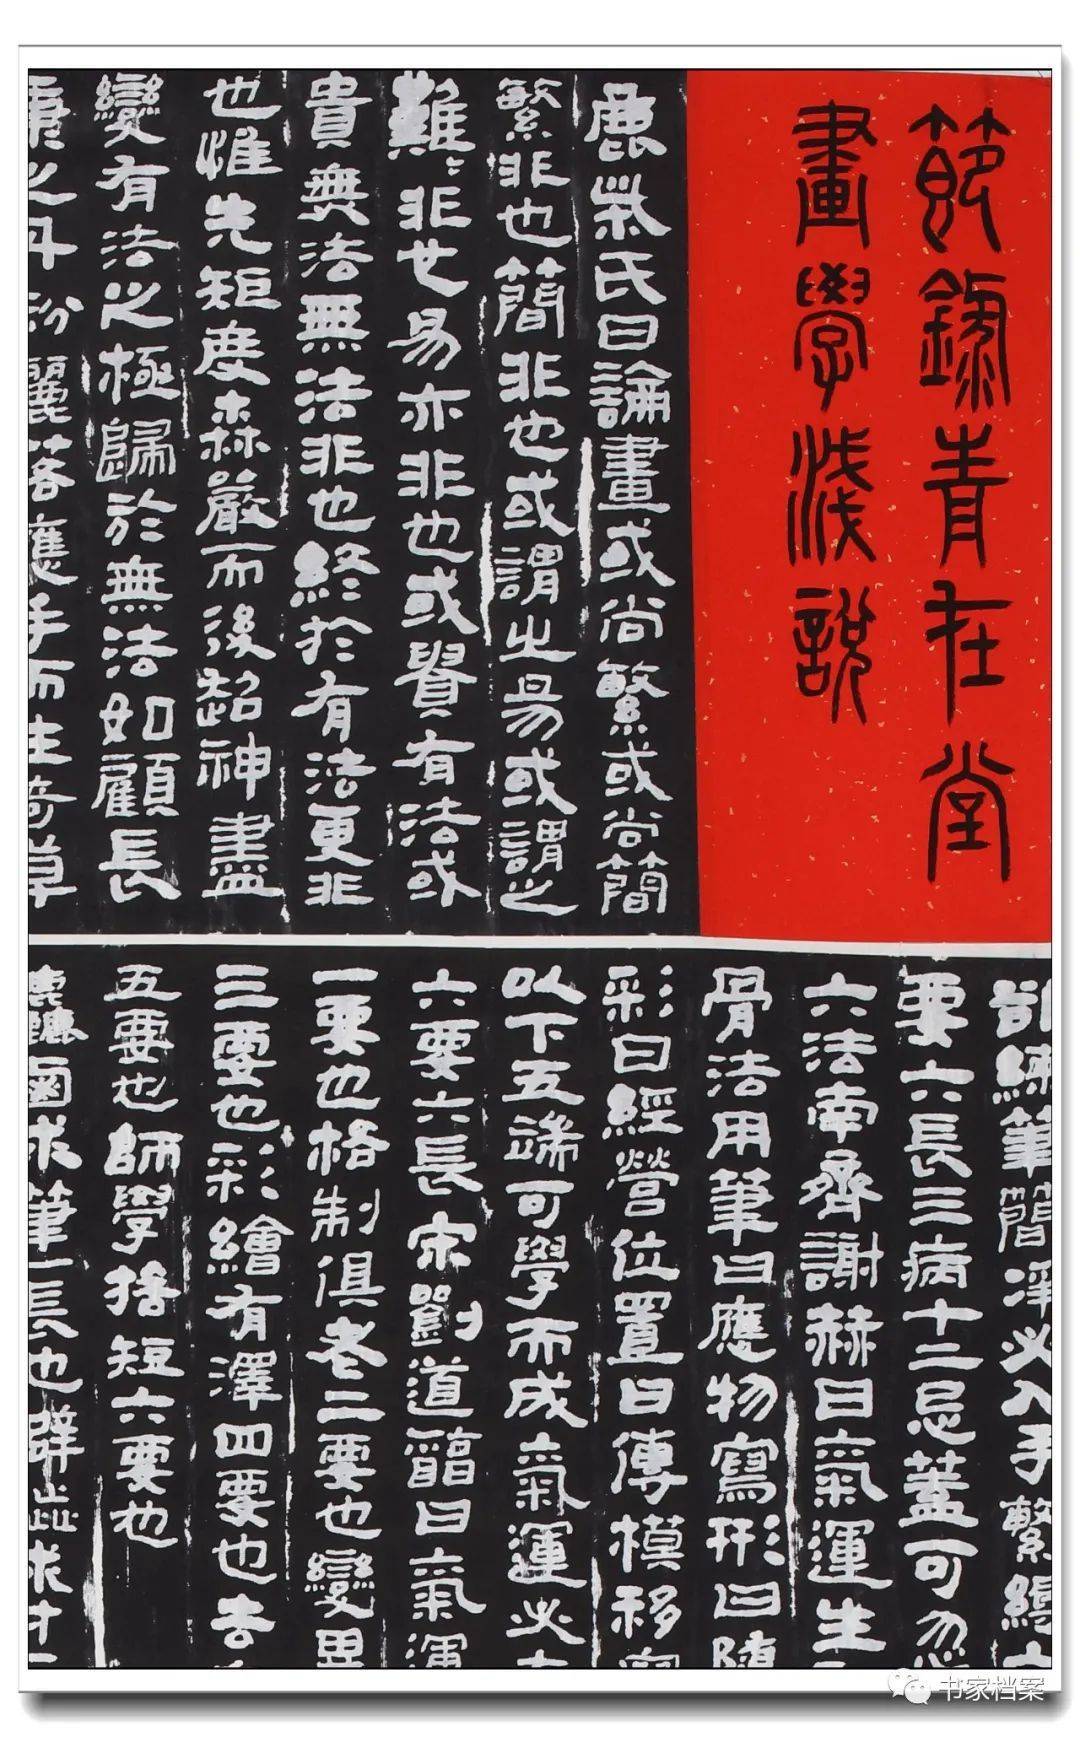 節錄青在堂
畫學淺說
鹿柴氏曰論畫或尚繁或尚簡
繁非也簡非也或謂之易或謂之
難〻非也易亦非也或貴有法或
貴無法無法非也終於有法更非
也惟先矩度森嚴而後超神盡
變有法之極歸於無法如顧長
康之丹粉灑落應手而生綺草
欲練筆簡淨必入手繁縟六
要六長三病十二忌蓋可忽
六法南齊謝赫曰氣運生
骨法用筆曰應物寫形曰隨
彩曰經營位置曰傳模移寫
以下五端可學而成氣運必在
六要六長宋劉道醇曰氣運
一要也格制俱老二要也變異
三要也彩繪有澤四要也去
五要也師學捨短六要也
麤鹵求筆一長也僻澀求才二
书家档案